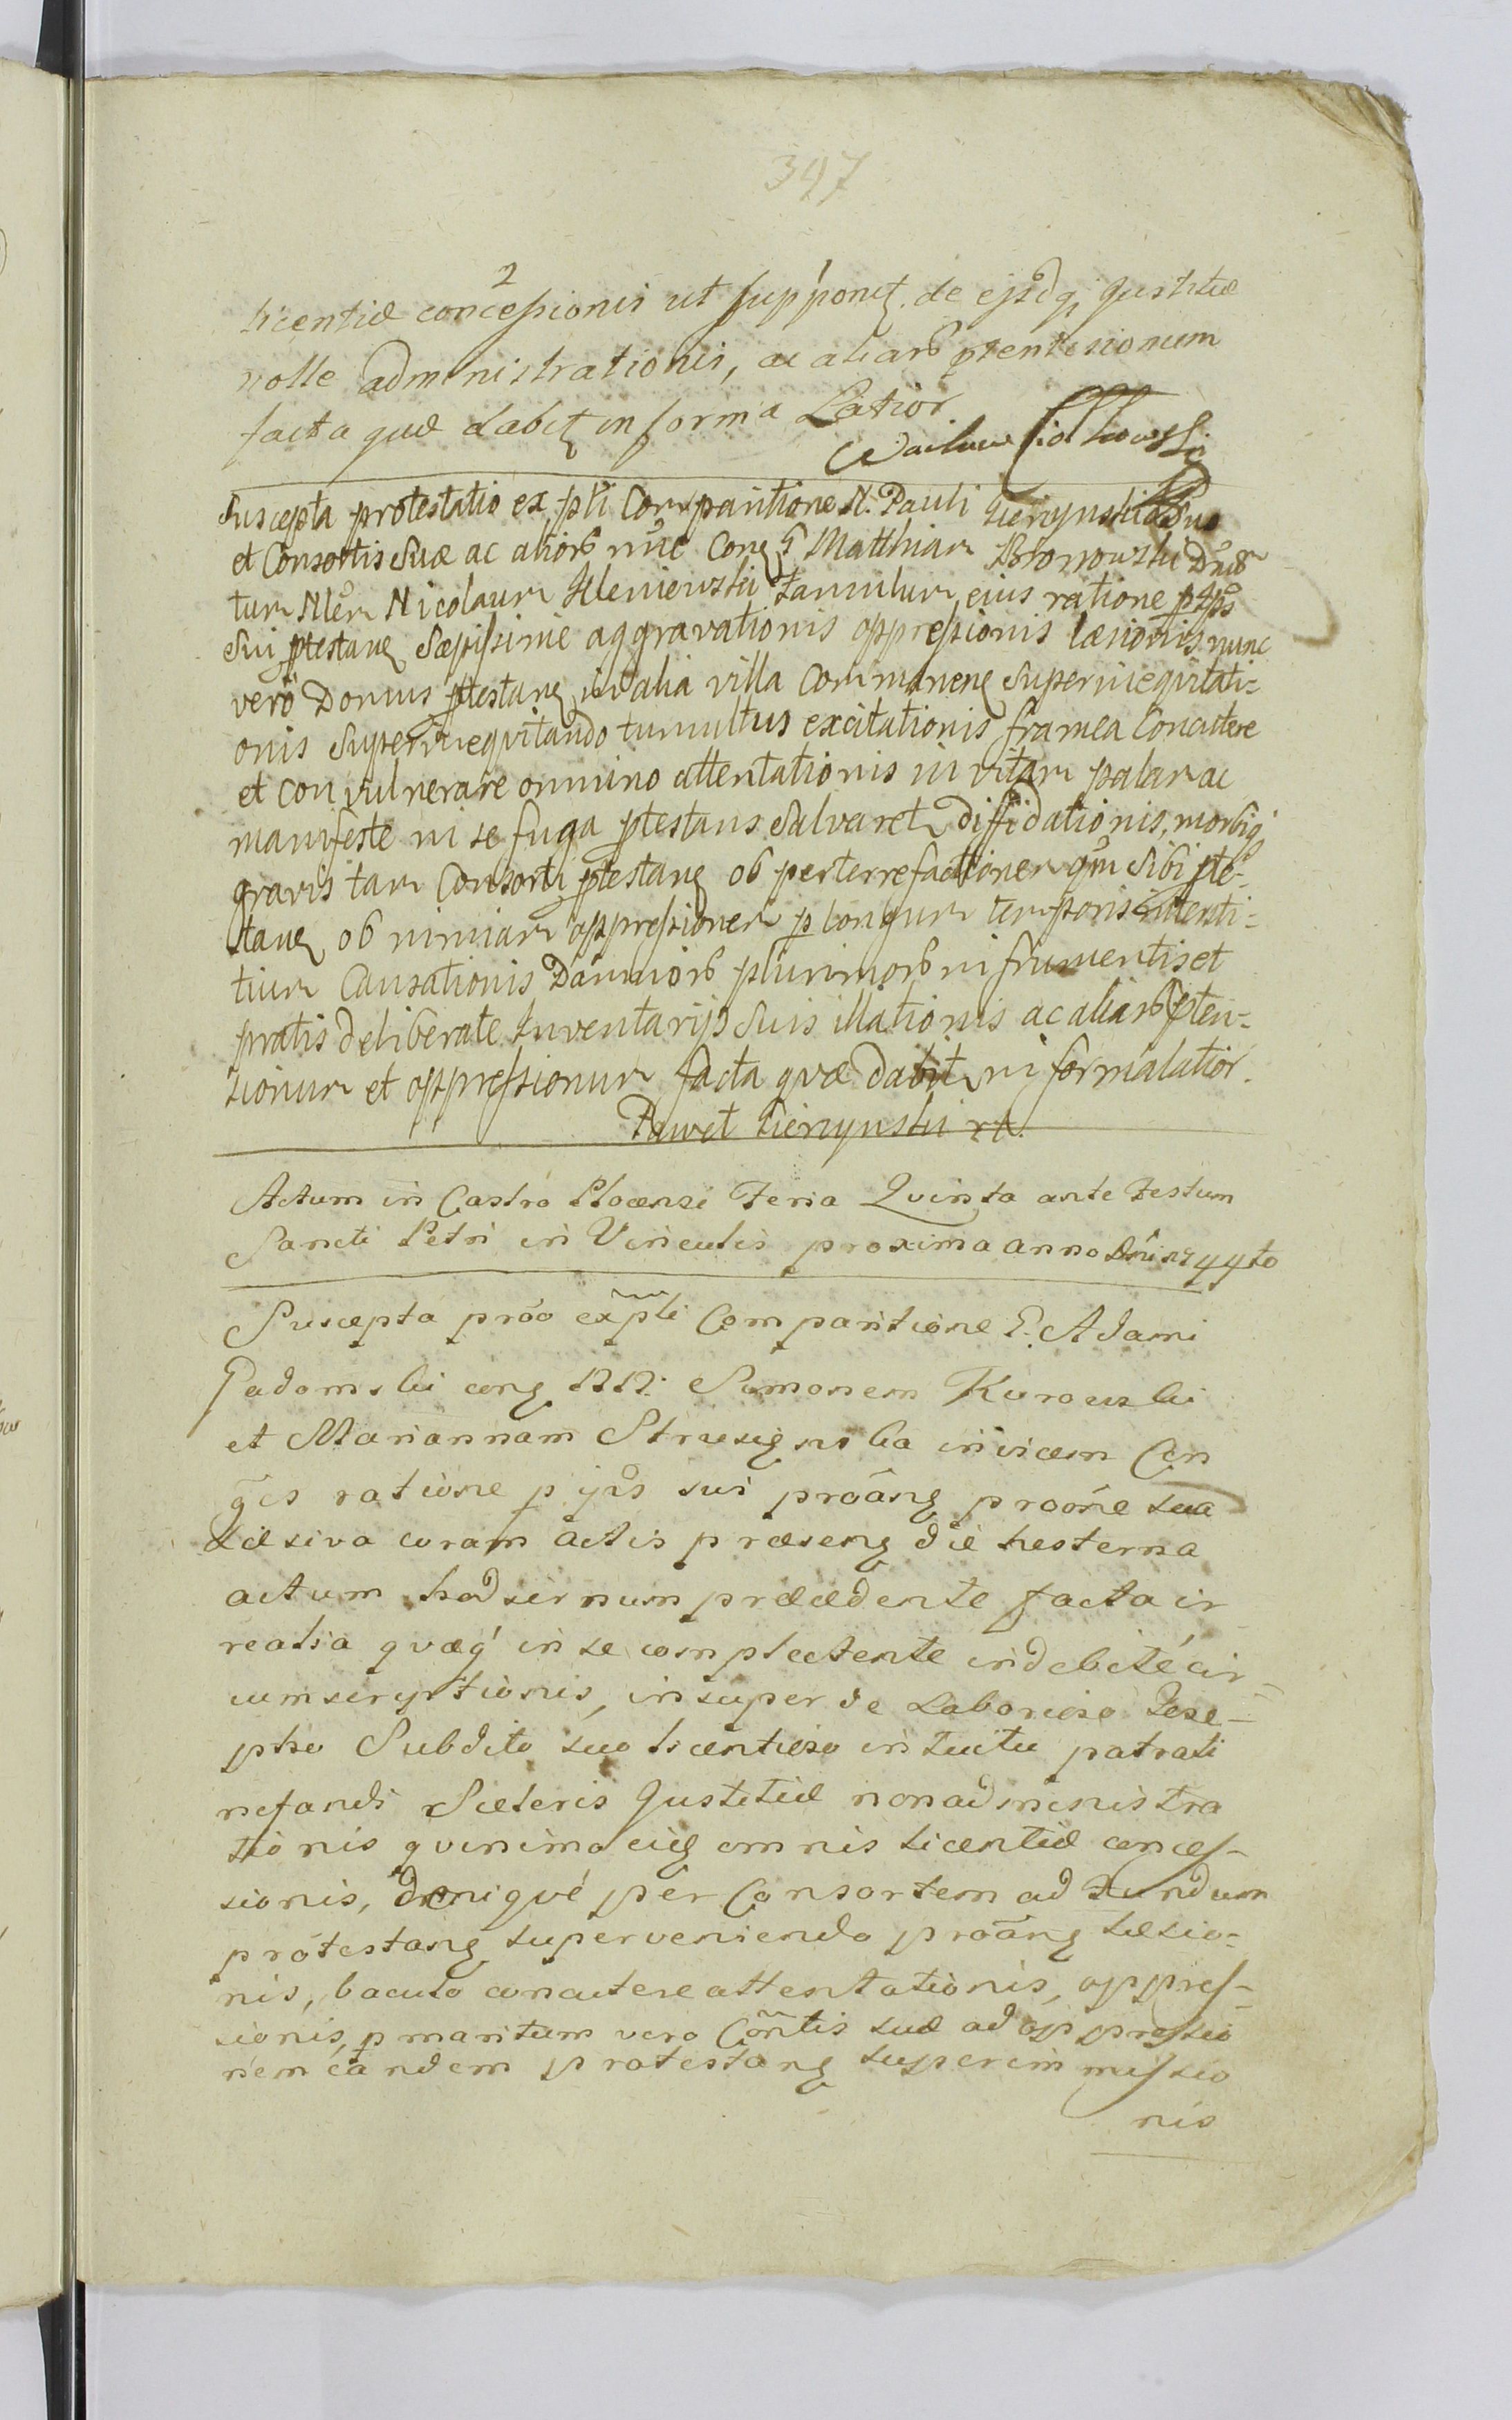 347
licentiæ concessionis ut supponet. de ejsdq Justitiæ
nolle administrationis, ac aliarb ptensionum
facta quæ dabit in forma Latior
Suscepta protestatio ex pti Comparitione N. Pauli
et Consortis Suæ ac aliorb nůc Conq G Matthiam Bromowski
tum Nicolaum famulum eius ratione
Sui ptestanq Sæpissime aggravationis oppressionis læsionis nunc
vero Domus ptestanq in alia villa Commanenq Superinequitati-
onis Superinequitando tumultus excitationis framea Concutere
et convulnerare omnino attentationis in vitam palam ac
manifeste ni se fuga ptestans Salvaret, diffidationis, morbiq
gravis tam Consorti ptestanq ob perterrefactionem qm Sibi pte-
stanq ob nimiam oppressionem p longum temporis intersti-
tium Causationis Damnorb plurimorb in frumentis et
pratis deliberate Inventarijs Suis illationis ac aliarb pten-
sionum et oppressionum facta quæ dabit in forma latior.
Paweł
Actum in Castro Plocensi Feria Quinta ante Festum
Sancti Petri in Vinculis proxima anno Dni 1744to
Suscepta prôo ex pti Comparitione G. Adami
Gadomski conq NN: Simonem Kurowski
et Mariannam invicem Con
ges ratione p ijs sui proãnq proône sua
Læsiva coram actis præsenq die hesterna
actum hodiernum præcedente facta ir
realia quæq in se complectente indebité cir-
cumscriptionis, insuper de Laborioso Jose-
pho Subdito suo licentioso intuitu patrati
nefandi Sceleris Justitiæ non administra
tionis quinimo eiq omnis licentiæ conces-
sionis, deniqué per Consortem ad Fundum
protestanq superveniendo proãnq læsio-
nis, baculo concutere attentationis, oppres-
sionis, p maritum vero Cõntis suæ ad oppressio
nem eandem protestanq superimmissio
nis